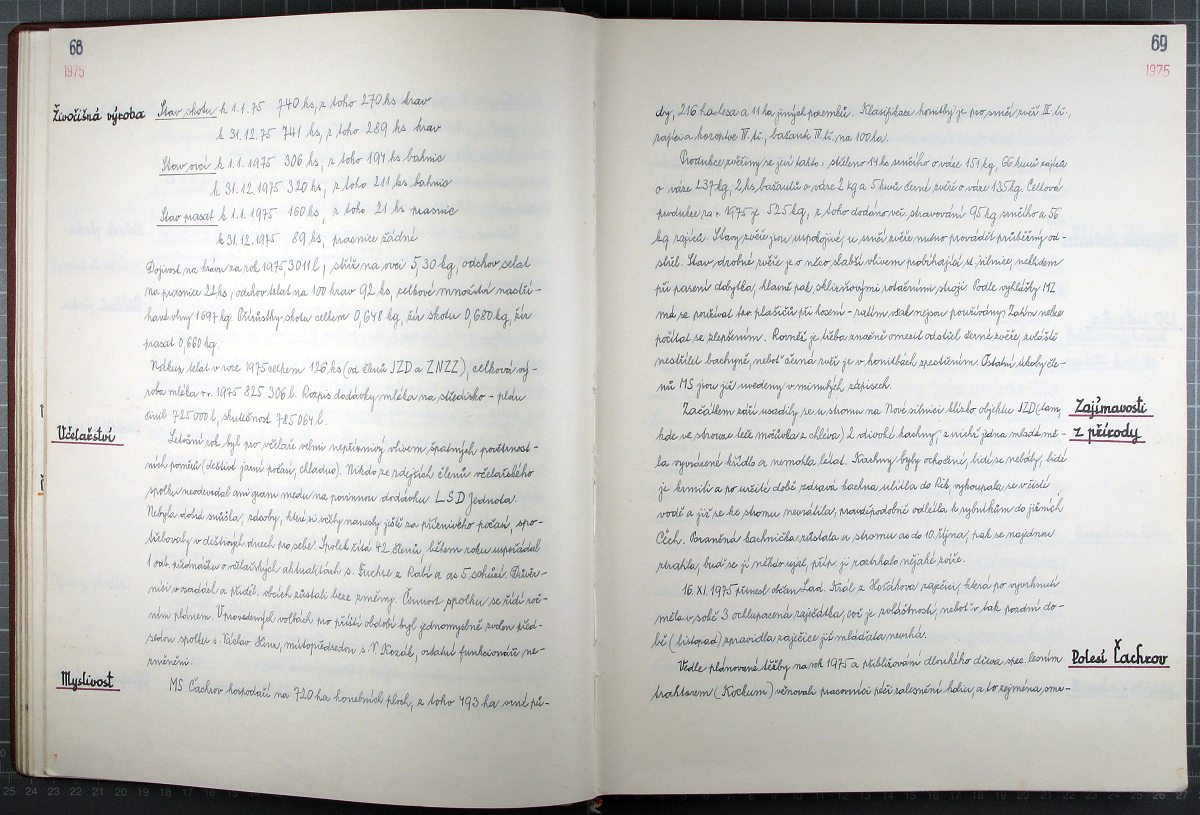 68
1975
Živočišná výroba
Stav skotu k 1.1.75 740 ks, z toho 270 ks krav
k 31.12.75 741 ks, z toho 289 ks krav
Stav ovcí k 1.1.1975 306 ks, z toho 194 ks bahnic
k 31.12.1975 320 ks, z toho 211 ks bahnic
Stav prasat k 1.1.1975 160 ks, z toho 21 ks prasnic
k 31.12.1975 89 ks, prasnice žádné
Dojivost na krávu za rok 1975 3011 l, stříž na ovci 5,30 kg, odchov selat
na prasnice 22 ks, odchov telat na 100 krav 92 ks, celkové množství nastří-
hané vlny 1697 kg. Přírůstky skotu celkem 0,648 kg, žír skotu 0,680 kg, žír
prasat 0,660 kg.
Nákup telat v roce 1975 celkem 126 ks (od členů JZD a ZNZZ), celková vý-
roba mléka v r. 1975 825 306 l. Rozpis dodávky mléka na středisko - plán
činil 725000 l, skutečnost 785064 l.
Včelařství
Letošní rok byl pro včelaře velmi nepříznivý vlivem špatných povětrnost-
ních poměrů (deštivé jarní počasí, chladno). Nikdo ze zdejších členů včelařského
spolku neodevzdal ani gram medu na povinnou dodávku LSD Jednota.
Nebyla dobrá snůška, zásoby, které si včelky nanosily ještě za příznivého počasí, spo-
třebovaly v deštivých dnech pro sebe. Spolek čítá 42 členů, během roku uspořádal
1 odb. přednášku o včelařských aktualitách s. Fuchse z Rabí a as 5 schůzí. Důvěr-
níci v osadách a příděl. obcích zůstali beze změny. Činnost spolku se řídí roč-
ním plánem. V provedených volbách pro příští období byl jednomyslně zvolen před-
sedou spolku s. Václav Hina, místopředsedou s. V. Kozák, ostatní funkcionáři ne-
změněni.
Myslivost
MS Čachrov hospodaří na 720 ha honebních ploch, z toho 493 ha orné pů-
69
1975
dy, 216 ha lesa a 11 ha jiných pozemků. Klasifikace honitby je pro srnčí zvěř III. tř.,
zajíci a koroptve IV. tř., bažanti IV. tř. na 100 ha.
Produkce zvěřiny se jeví takto: střeleno 14 ks srnčího o váze 151 kg, 66 kusů zajíců
o váze 237 kg, 2 ks bažantů o váze 2 kg a 5 kusů černé zvěře o váze 135 kg. Celková
produkce za r. 1975 je 525 kg, z toho dodáno veř. stravování 95 kg srnčího a 56
kg zajíců. Stavy zvěře jsou uspokojivé, u srnčí zvěře nutno provádět průběrný od-
střel. Stav drobné zvěře je o něco slabší vlivem probíhající st. silnice, neklidem
při pasení dobytka, hlavně pak sklizňovými rotačními stroji. Podle vyhlášky MZ
má se používat tzv. plašičů při kosení - zatím však nejsou používány. Zatím nelze
počítat se zlepšením. Rovněž je třeba značně omezit odstřel černé zvěře, zvláště
nestřílet bachyně, neboť černá zvěř je v honitbách zpestřením. Ostatní úkoly čle-
nů MS jsou již uvedeny v minulých zápisech.
Zajímavosti
z přírody
Začátkem září usadily se u stromu na Nové silnici blízko objektu JZD (tam,
kde ve strouze teče močůvka z chléva) 2 divoké kachny, z nichž jedna mladá mě-
la vymácené křídlo a nemohla létat. Kachny byly ochočené, lidí se nebály, lidé
je krmili a po určité době zdravá kachna ulétla do Řek, vykoupala se v čisté
vodě a již se ke stromu nevrátila, pravděpodobně odlétla k rybníkům do jižních
Čech. Poraněná kachnička zůstala u stromu as do 10. října, pak se najednou
ztratila, buď se jí někdo ujal, příp. ji zadrhlo nějaké zvíře.
16. XI. 1975 přinesl občan Lad. Král z Hořákova zaječici, která po vyvrhnutí
měla v sobě 3 ochlupacená zajíčátka, což je zvláštností, neboť v tak pozdní do-
bě (listopad) zpravidla zaječice již mláďata nevrhá.
Polesí Čachrov
Vedle plánované těžby na rok 1975 a přibližování dlouhého dřeva spec. lesním
traktorem (Kockum) věnovali pracovníci péči zalesnění holin, a to zejména smr-